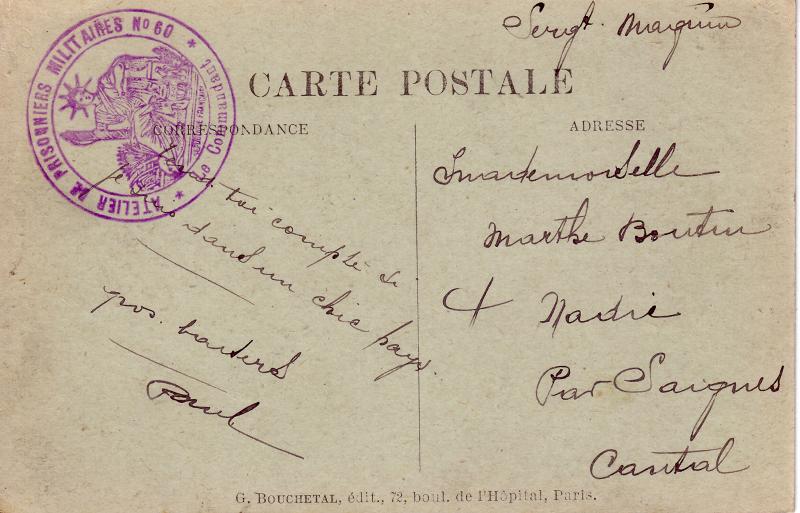 Sergt. Magnin
CARTE POSTALE
ATELIER DE PRISONNIERS MILITAIRES No 60
Le Commandant
CORRESPONDANCE
toi compte si
je suis dans un chic pays.
gros baisers
Paul
ADRESSE
Mademoiselle
Marthe Boutin
Par Saignes
Cantal
G. BOUCHETAL, édit., 72, boul. de l'Hôpital, Paris.